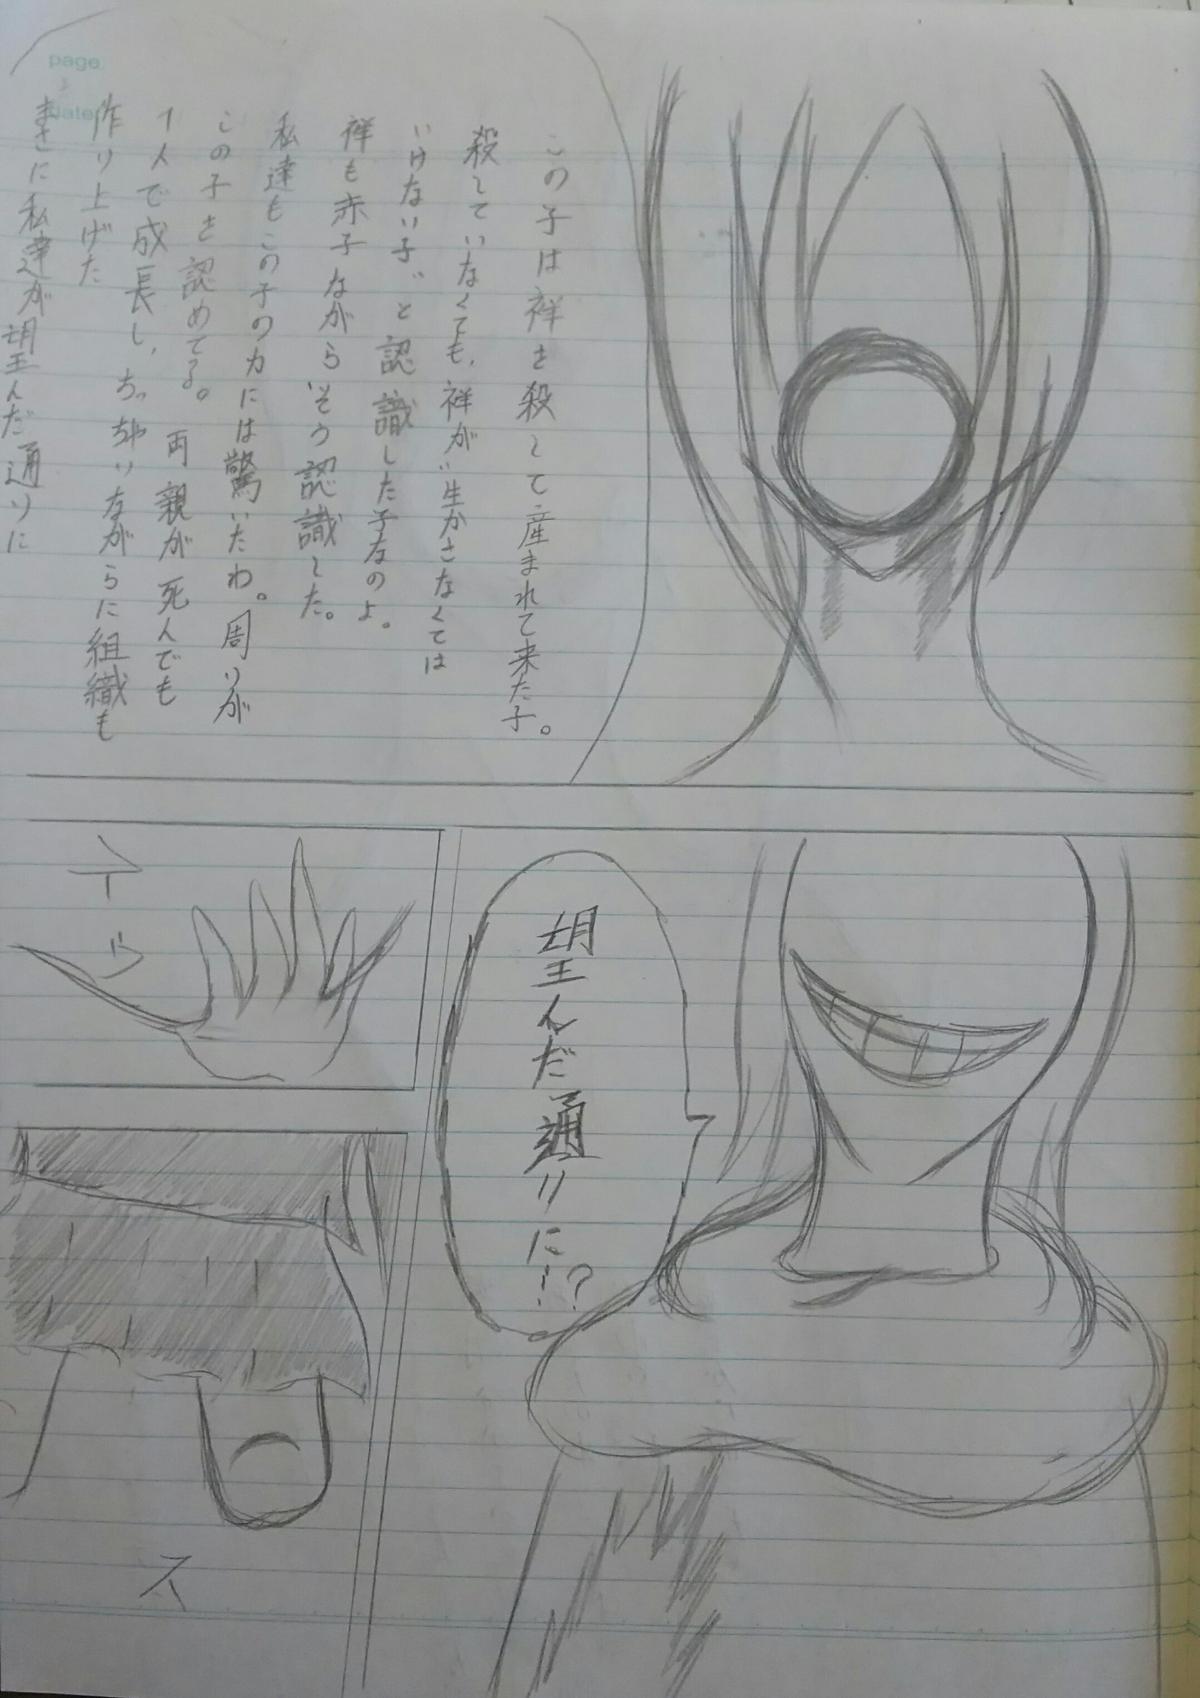 page
この子は祥を殺して産まれて来た子。
殺していなくても、祥が"生かさなくては
いけない子"と認識した子なのよ。
祥も赤子ながら"そう認識した。
私達もこの子の力には驚いたわ。周りが
この子を認めてる。両親が死んでも
1人で成長し、ちっちゃいながらに組織も
作り上げた
まさに私達が望んだ通りに
望んだ通りに!?
ス